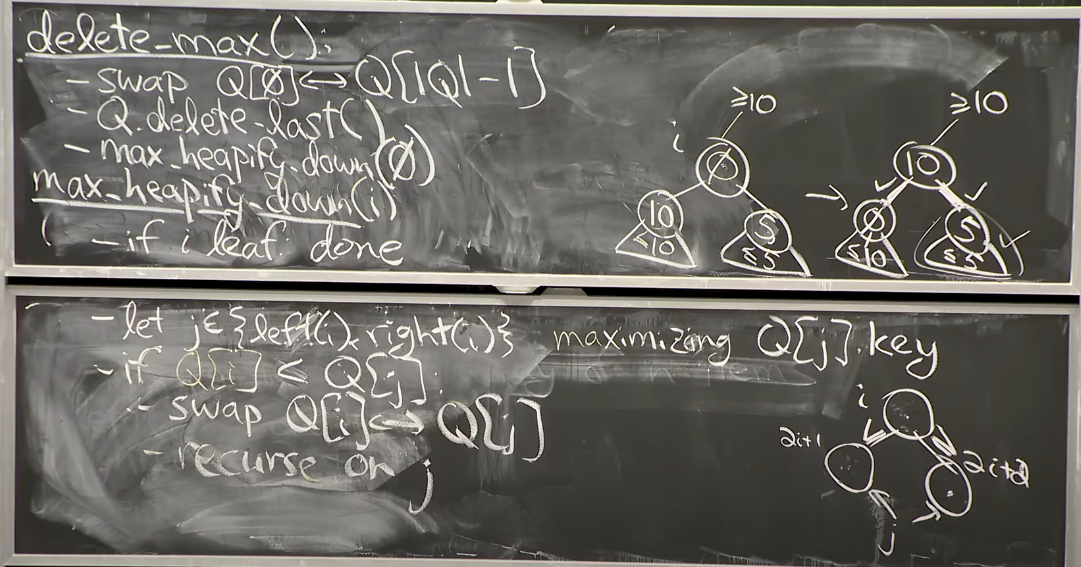 delete_max():
- swap Q[∅] ↔ Q[|Q|-1]
- Q.delete_last()
- max_heapify_down(∅)
max_heapify_down(i)
- if i leaf: done
≥10
i
∅
10
≤10
5
≤5
→
≥10
10
∅
≤10
5
≤5
- let j ∈ {left(i), right(i)} maximizing Q[j].key
- if Q[i] < Q[j]:
- swap Q[i] ↔ Q[j]
- recurse on j
i
2i+1
2i+2
j